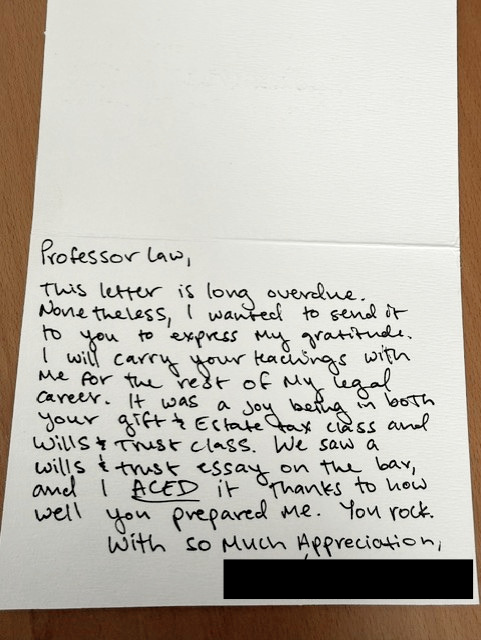 Professor Law,
This letter is long overdue.
Nonetheless, I wanted to send it
to you to express my gratitude.
I will carry your teachings with
me for the rest of my legal
career. It was a joy being in both
your gift & Estate tax class and
Wills & Trust class. We saw a
wills & trust essay on the bar,
and I ACED it thanks to how
well you prepared me. You rock.
With so much Appreciation,